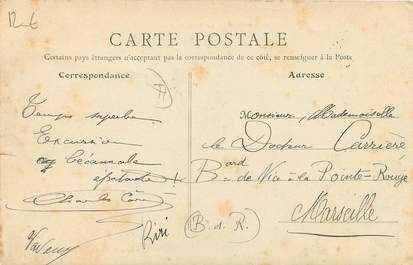 CARTE POSTALE
Certains pays étrangers n'acceptant pas la correspondance de ce côté, se renseigner à la Poste
Correspondance
Adresse
Temps superbe
Excursion
épatante !
Charles
Riri
Monsieur, Mademoiselle
le Docteur Carrière
Bard de Vice à la Pointe-Rouge
Marseille
(B. d. R.)